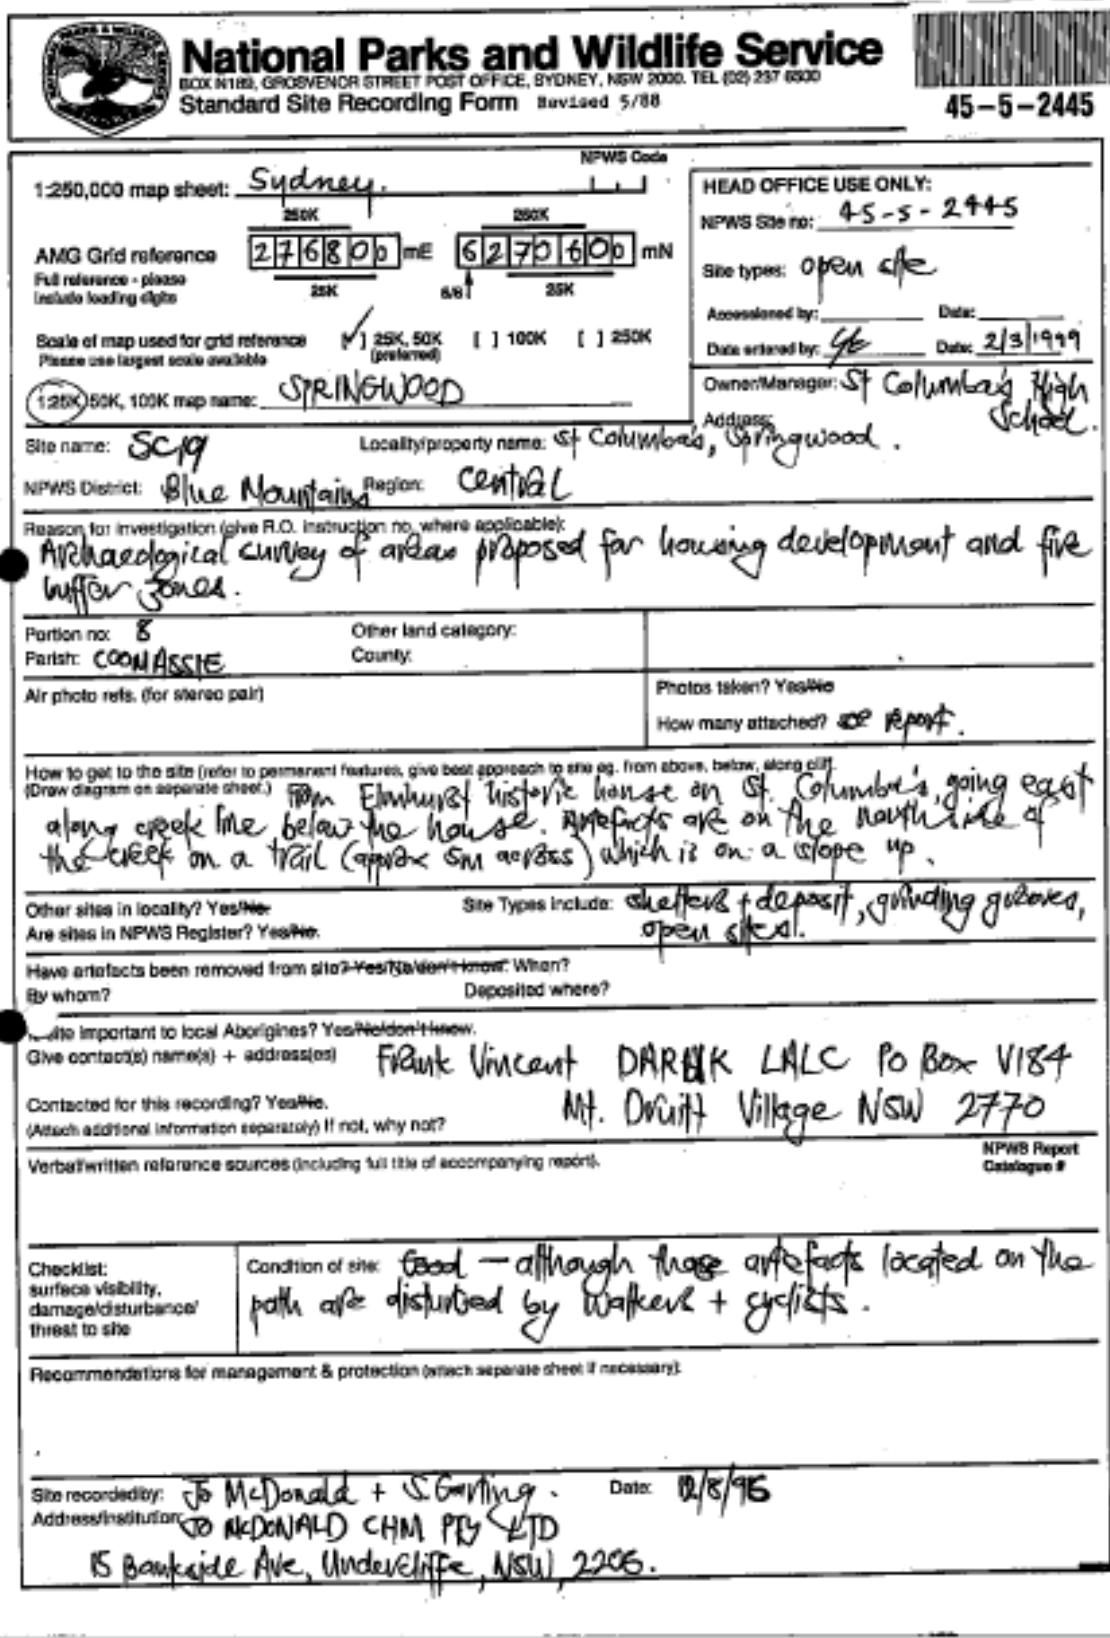 National Parks and Wildlife Service
BOX N189, GROSVENOR STREET POST OFFICE, SYDNEY, NSW 2000. TEL (02) 237 6500
Standard Site Recording Form Revised 5/88
45-5-2445
NPWS Code
1:250,000 map sheet: Sydney.
250K 250K
AMG Grid reference 276800 mE 6270600 mN
Full reference - please
include leading digits
25K 6/6 25K
Scale of map used for grid reference [✓] 25K, 50K [ ] 100K [ ] 250K
Please use largest scale available (preferred)
1:25K, 50K, 100K map name: SPRINGWOOD
HEAD OFFICE USE ONLY:
NPWS Site no: 45-5-2445
Site types: open site
Accessioned by: Date:
Data entered by: Date: 2/3/1999
Owner/Manager: St Columba's High
Address: School.
Site name: SC19 Locality/property name: St Columba's, Springwood.
NPWS District: Blue Mountains Region: Central
Reason for investigation (give R.O. instruction no. where applicable):
Archaeological survey of areas proposed for housing development and fire
buffer zones.
Portion no: 8 Other land category:
Parish: COOMASSIE County:
Air photo refs. (for stereo pair)
Photos taken? Yes/No
How many attached? see report.
How to get to the site (refer to permanent features, give best approach to site eg. from above, below, along cliff.
(Draw diagram on separate sheet.) From Elmhurst historic house on St. Columba's, going east
along creek line below the house. Artefacts are on the north side of
the creek on a trail (approx 5m across) which is on a slope up.
Other sites in locality? Yes/No. Site Types include: shelters + deposit, grinding grooves,
Are sites in NPWS Register? Yes/No. open sites.
Have artefacts been removed from site? Yes/No/don't know. When?
By whom? Deposited where?
site important to local Aborigines? Yes/No/don't know.
Give contact(s) name(s) + address(es) Frank Vincent DARUK LALC PO Box V184
Contacted for this recording? Yes/No. Mt. Druitt Village NSW 2770
(Attach additional information separately) If not, why not?
Verbal/written reference sources (including full title of accompanying report).
NPWS Report
Catalogue #
Checklist:
surface visibility,
damage/disturbance/
threat to site
Condition of site: Good — although those artefacts located on the
path are disturbed by walkers + cyclists.
Recommendations for management & protection (attach separate sheet if necessary):
Site recorded by: Jo McDonald + S. Garling. Date: 12/8/95
Address/institution: JO McDONALD CHM PTY LTD
15 Bankside Ave, Undercliffe, NSW, 2206.